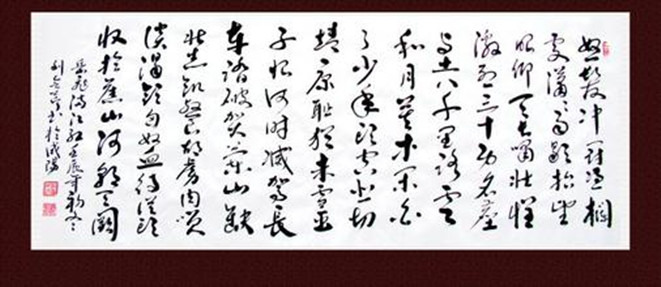 怒髮冲冠凭欄
處潇潇雨歇抬望
眼仰天长啸壮怀
激烈三十功名塵
与土八千里路雲
和月莫等闲白
了少年头空悲切
靖康耻犹未雪臣
子恨何时滅驾長
車踏破贺兰山缺
壮志饥餐胡虏肉笑
谈渴飲匈奴血待從头
收拾舊山河朝天闕
岳飞满江红壬辰年初冬
刘 书於咸陽